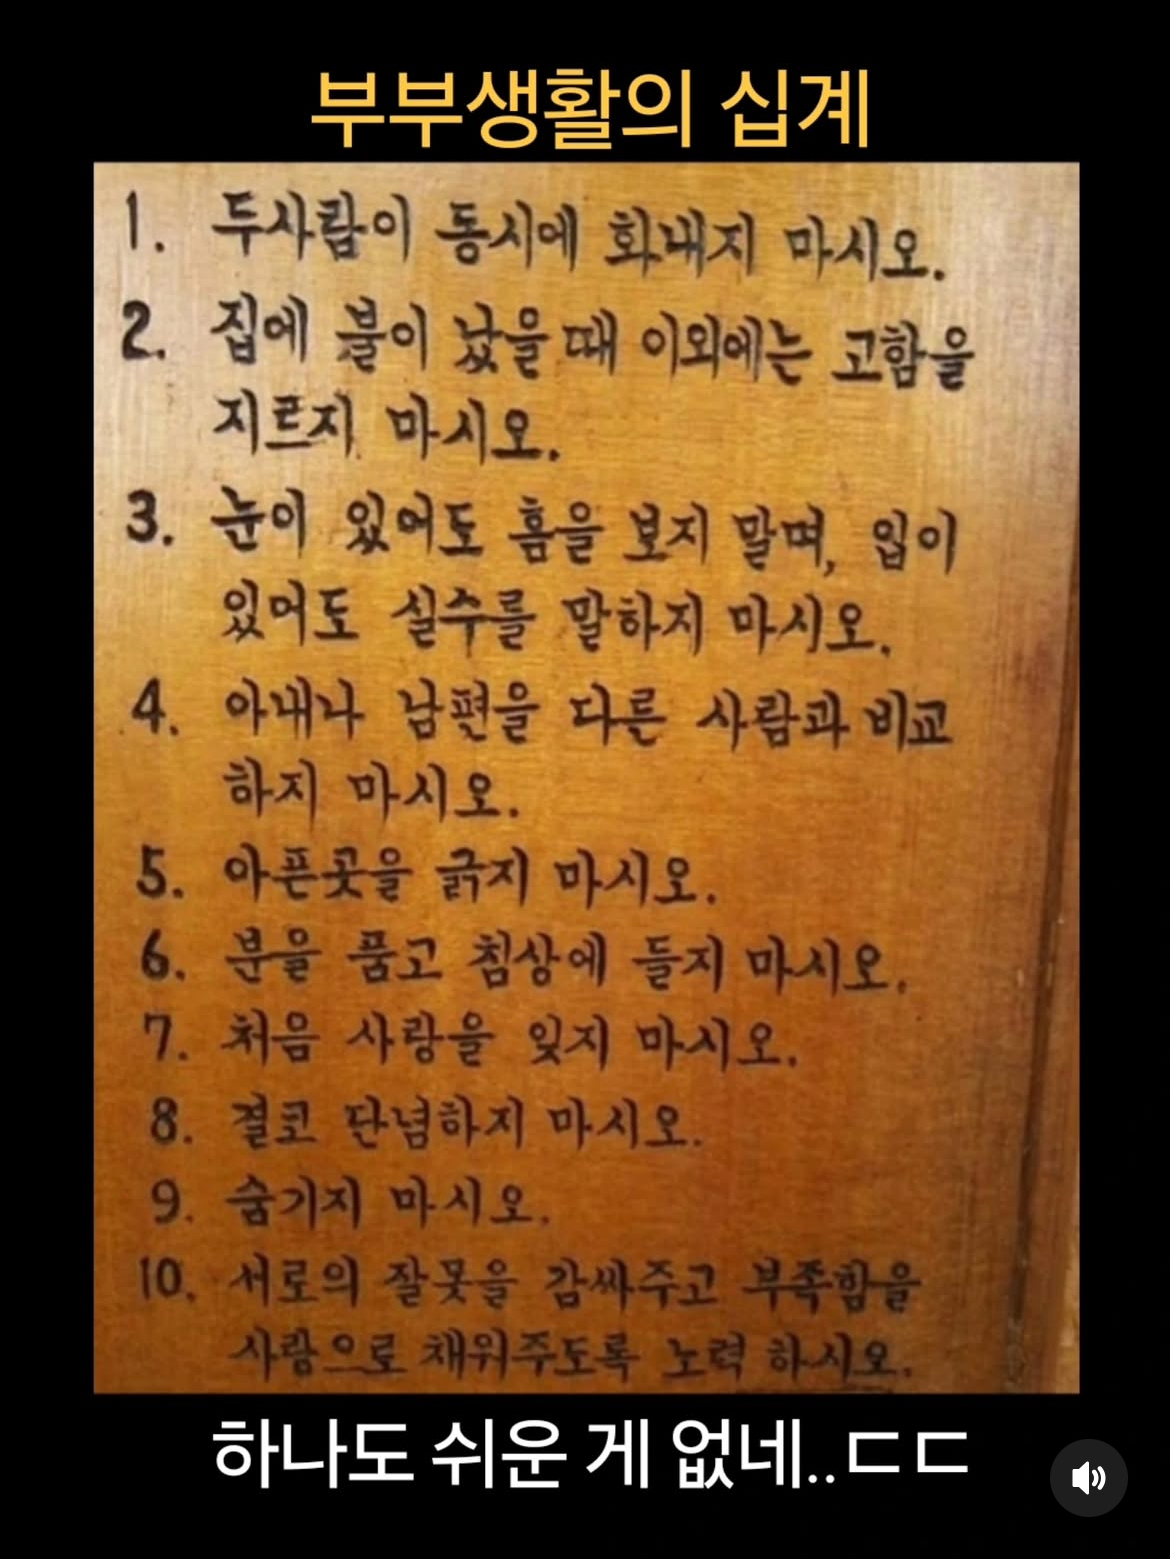 부부생활의 십계
1. 두사람이 동시에 화내지 마시오.
2. 집에 불이 났을 때 이외에는 고함을
지르지 마시오.
3. 눈이 있어도 흠을 보지 말며, 입이
있어도 실수를 말하지 마시오.
4. 아내나 남편을 다른 사람과 비교
하지 마시오.
5. 아픈곳을 긁지 마시오.
6. 분을 품고 침상에 들지 마시오.
7. 처음 사랑을 잊지 마시오.
8. 결코 단념하지 마시오.
9. 숨기지 마시오.
10. 서로의 잘못을 감싸주고 부족함을
사랑으로 채워주도록 노력 하시오.
하나도 쉬운 게 없네..ㄷㄷ